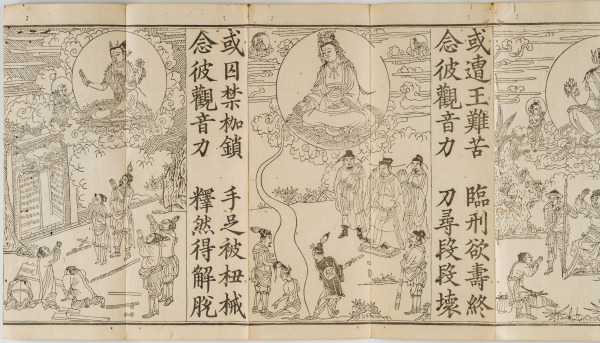 或遭王難苦　臨刑欲壽終
念彼觀音力　刀尋段段壞
或囚禁枷鎖　手足被杻械
念彼觀音力　釋然得解脫